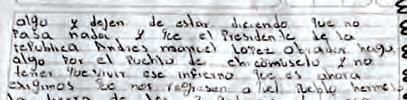 algo y dejen de estar diciendo que no
Pasa nada y que el Presidente de la
republica Andres manuel Lopez obrador haga
algo Por el Pueblo de chicomuselo y no
tener que vivir ese infierno que es ahora
exigimos que nos regresen a el Pueblo hermoso